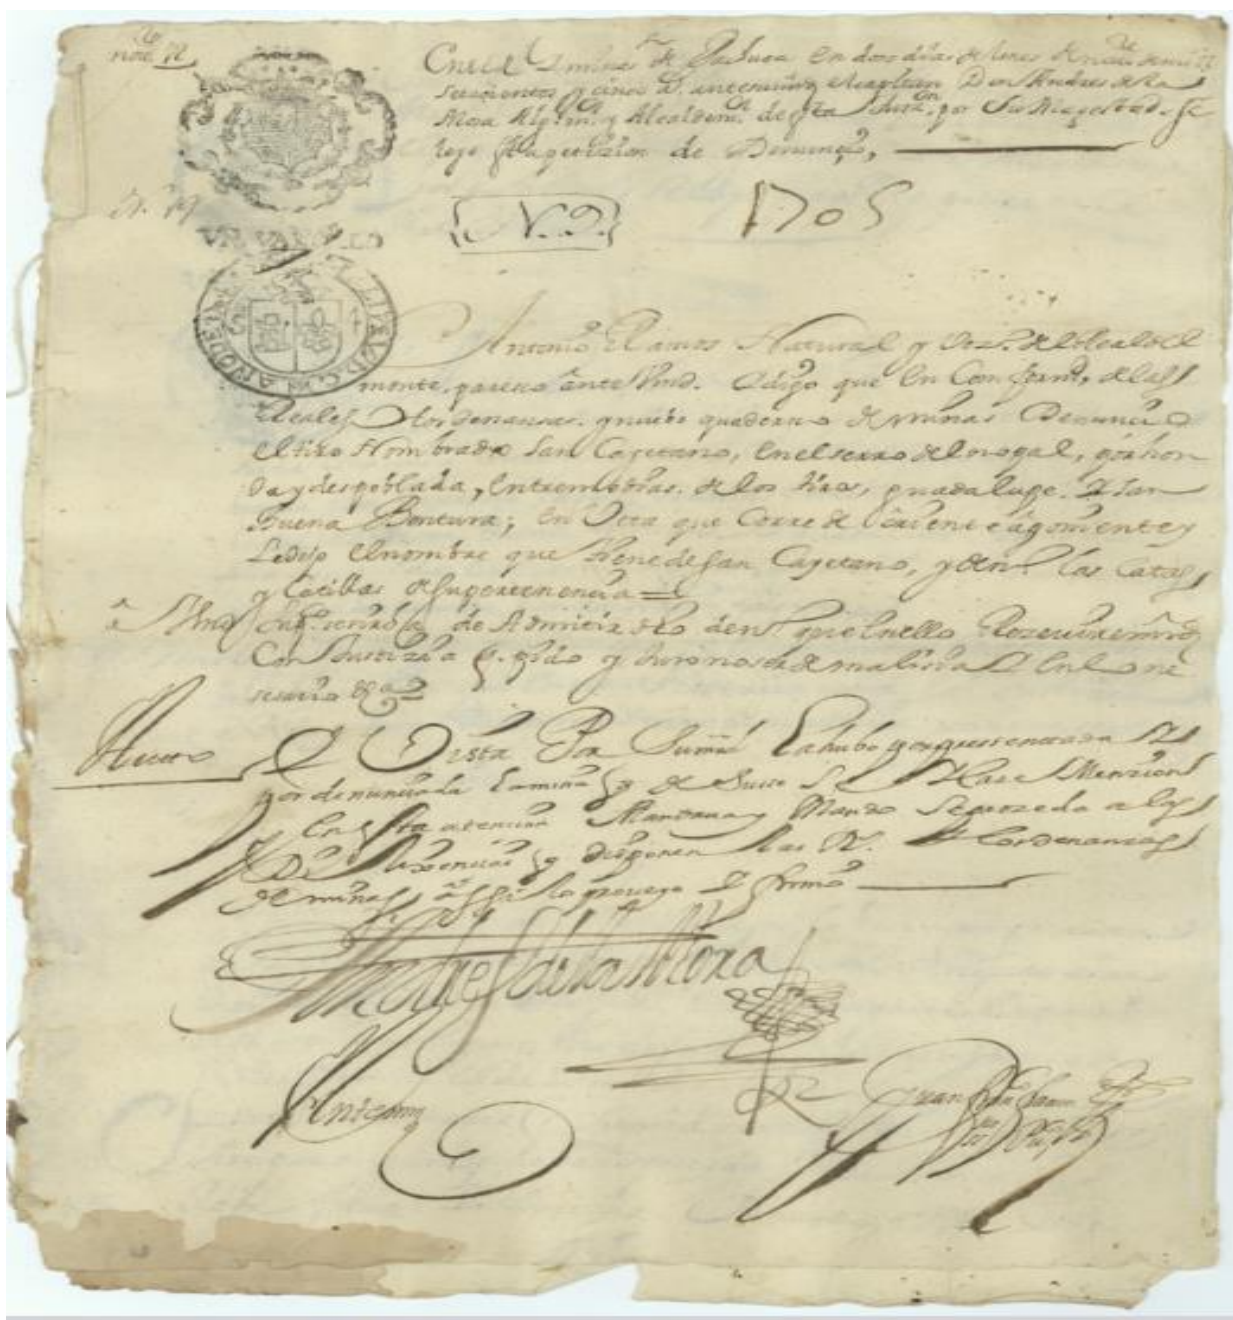 nov.e 2
En el R.l
de minas de Pachuca En dos dias del mes de nov.e de mill
setecientos y cinco a.s ante mi el Capitan Don Andres de la
Mora Alg.r m.r y Alcalde m.r de esta Juris.on por Su Magestad se
leyo esta petizion de Denunçio,
N. 2.
1705
VN QVARTILLO
Antonio Ramos Natural y Vez.o de el Real del
monte, paresco ante Vmd. Y digo que en Conform.d de las
Reales Hordenansas y nuebo quaderno de minas Denuncio
el tiro Nombrado San Cayetano, en el serro del nogal, por hon
da y despoblada, Entremedias de los tiros, guadalupe, Y San
Buena Bentura; en Veta que Corre de oriente a poniente y
le dejo el nombre que tiene de San Cayetano, y den.o las Catas
y Catillas de su pertenencia =
A Vmd sup.co se sirva de Admitir este den.o que en ello Reseuire mrd
Con Justizia q. pido y Juro no ser de malicia Y En lo ne
sesario &a
Auto
Vista Por Su md La hubo por pressentada Y
por denunciada la mina q de suso Se Hase Menzion
En esta atencion Mandava y Mando Se proceda a las
Dilixencias q disponen las R.s Hordenanzas
de minas assi lo proveyo Y firmo
Andres de la Mora
Ante my
Juan